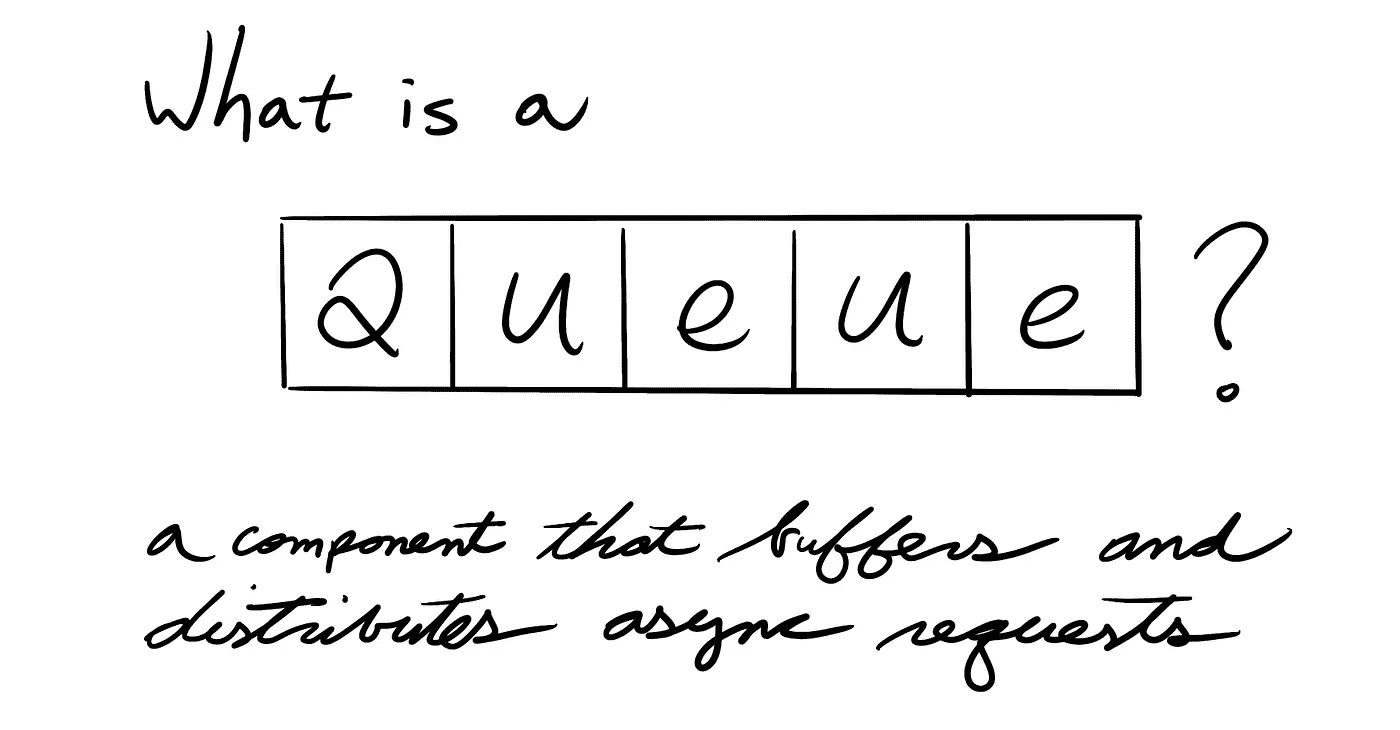 What is a
Queue?
a component that buffers and
distributes async requests